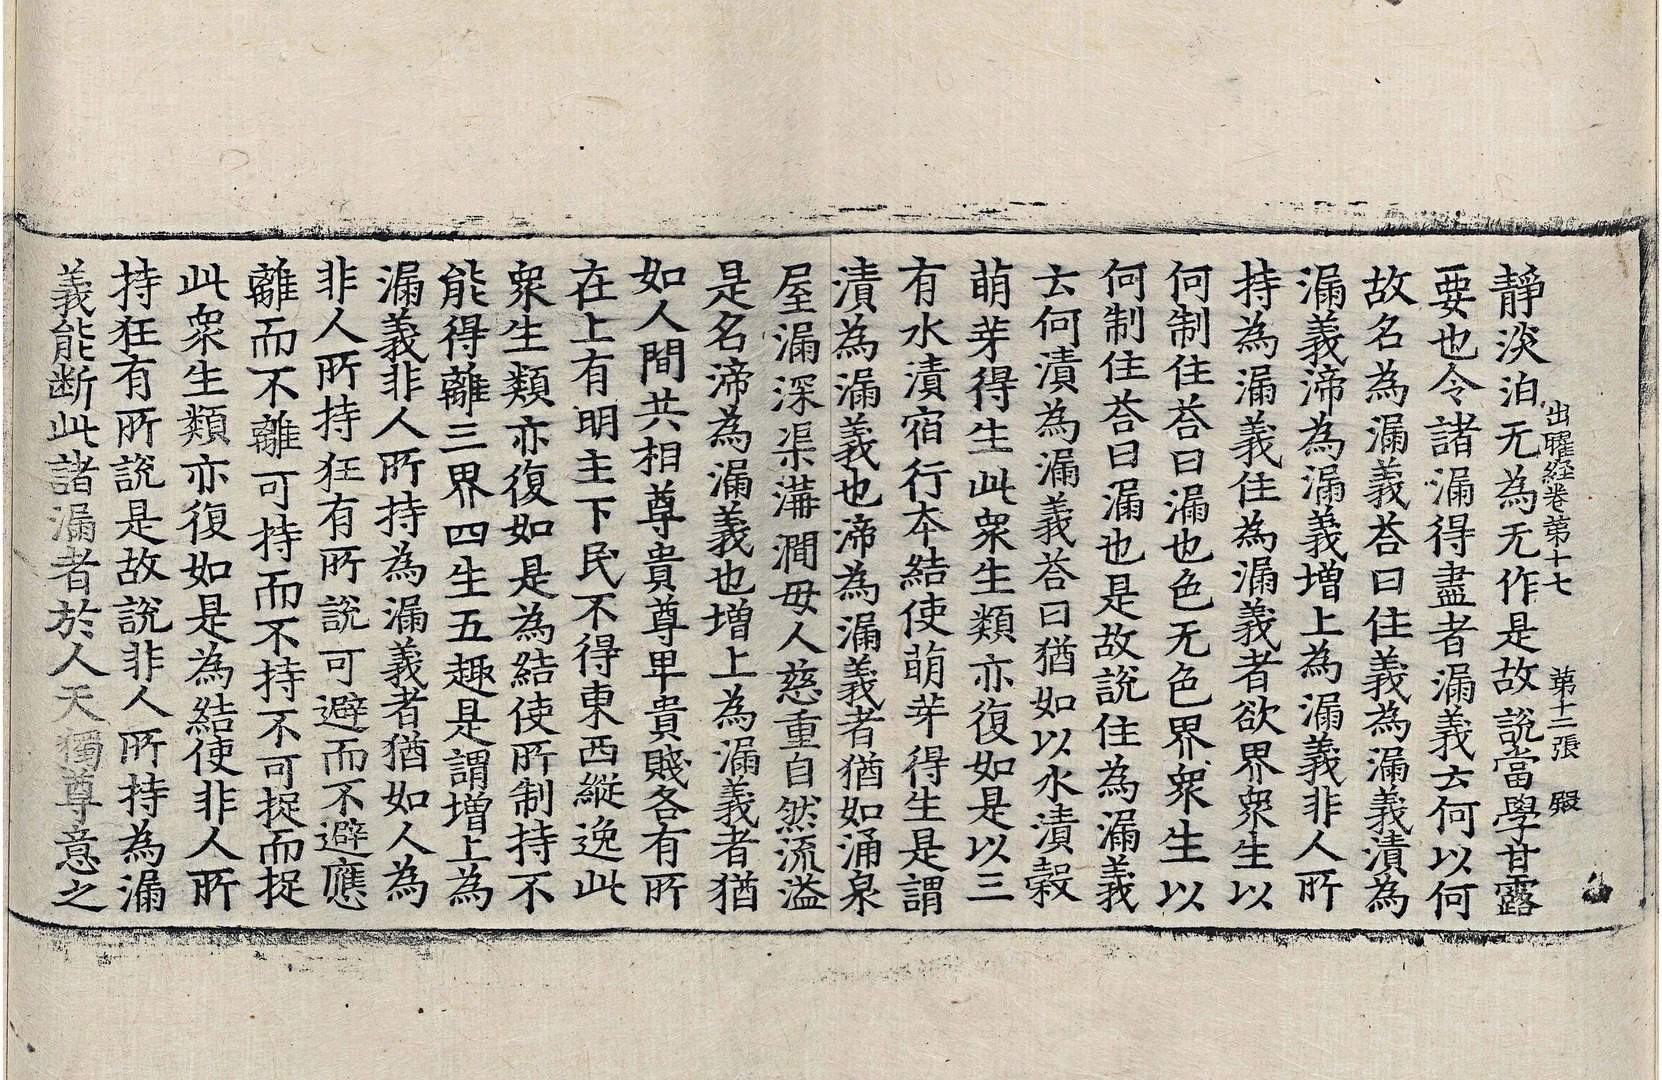 出曜経卷第十七 第十二張 殷
靜淡泊无為无作是故說當學甘露
要也令諸漏得盡者漏義去何以何
故名為漏義荅曰住義為漏義漬為
漏義渧為漏義增上為漏義非人所
持為漏義住為漏義者欲界衆生以
何制住荅曰漏也色无色界衆生以
何制住荅曰漏也是故說住為漏義
去何漬為漏義荅曰猶如以水漬穀
萌芽得生此衆生類亦復如是以三
有水漬宿行夲結使萌芽得生是謂
漬為漏義也渧為漏義者猶如涌泉
屋漏深渠溝澗母人慈重自然流溢
是名渧為漏義也增上為漏義者猶
如人間共相尊貴尊卑貴賤各有所
在上有明主下民不得東西縱逸此
衆生類亦復如是為結使所制持不
能得離三界四生五趣是謂增上為
漏義非人所持為漏義者猶如人為
非人所持狂有所說可避而不避應
離而不離可持而不持不可捉而捉
此衆生類亦復如是為結使非人所
持狂有所說是故說非人所持為漏
義能断此諸漏者於人天獨尊意之